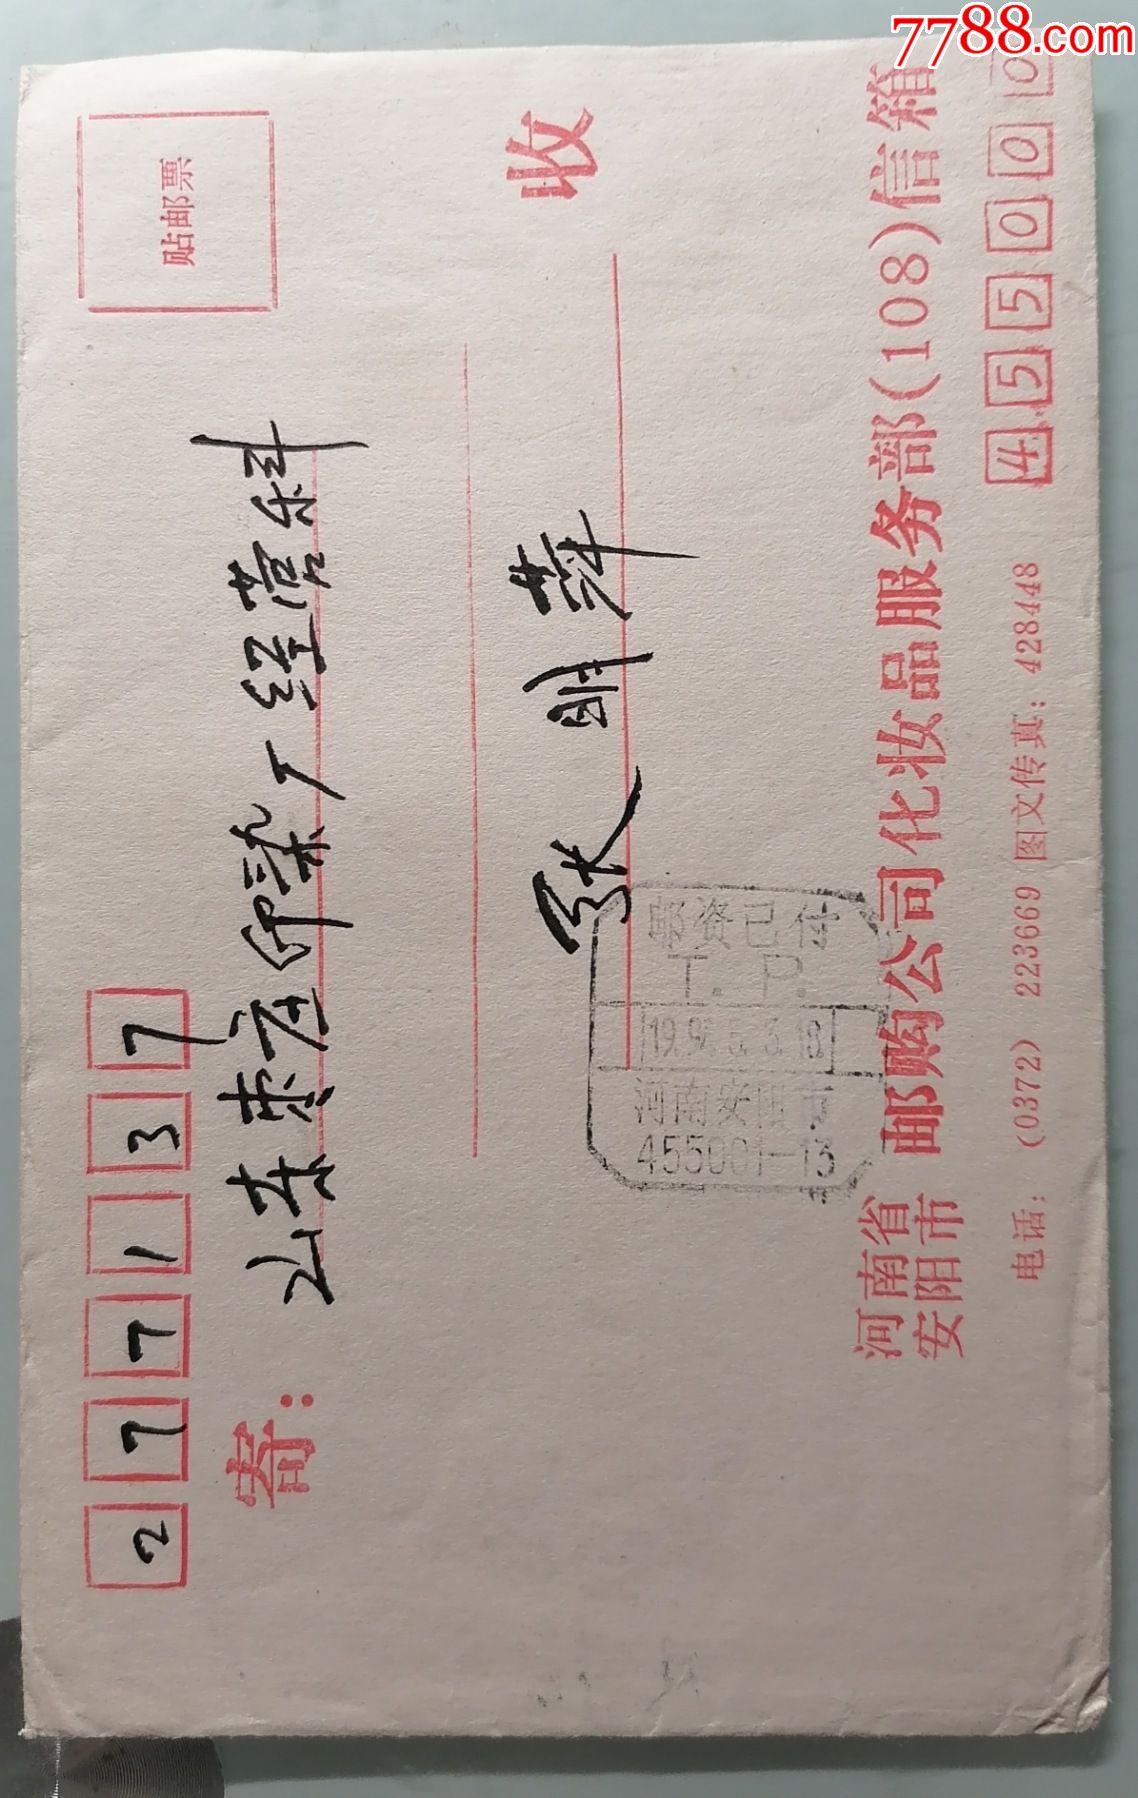 7788.com
277137
贴邮票
寄：
山东枣庄印染厂经营科
张明萍
收
邮资已付
T. P.
河南安阳市
455001-13
河南省
安阳市
邮购公司化妆品服务部(108)信箱
电话：(0372) 223669 图文传真：428448
455000